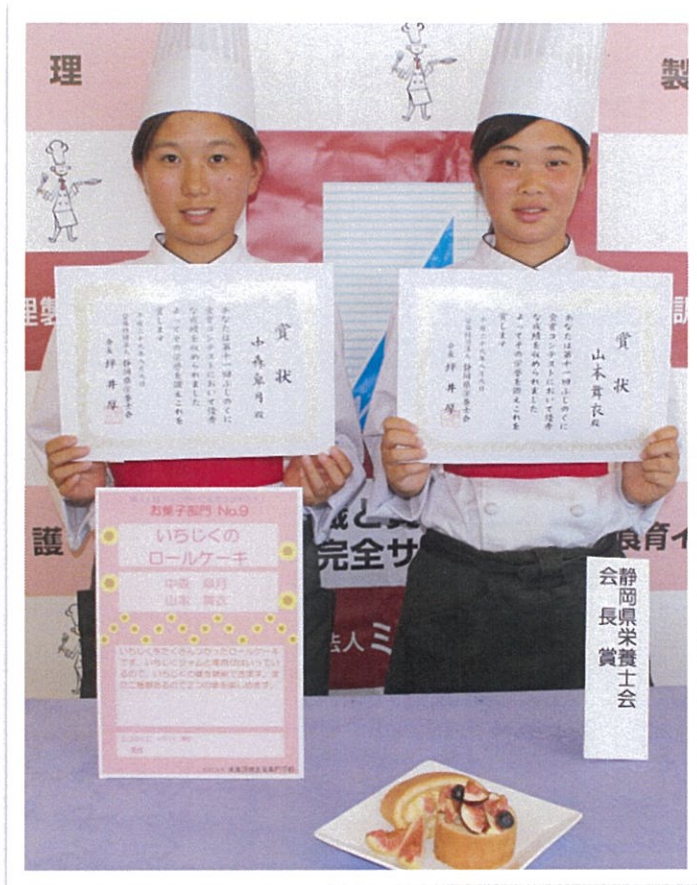 理
製
理製
調
賞状
中森皐月 殿
あなたは第十一回ふじのくに
食育コンテストにおいて優秀
な成績を収められました
よってその栄誉を讃えこれを
賞します
公益社団法人 静岡県栄養士会
会長 坪井厚
賞状
山本舞衣 殿
あなたは第十一回ふじのくに
食育コンテストにおいて優秀
な成績を収められました
よってその栄誉を讃えこれを
賞します
公益社団法人 静岡県栄養士会
会長 坪井厚
護
完全サ
食育イ
法人ミ
お菓子部門 No.9
いちじくの
ロールケーキ
中森 皐月
山本 舞衣
いちじくをたくさんつかったロールケーキ
静岡県栄養士会
会長賞